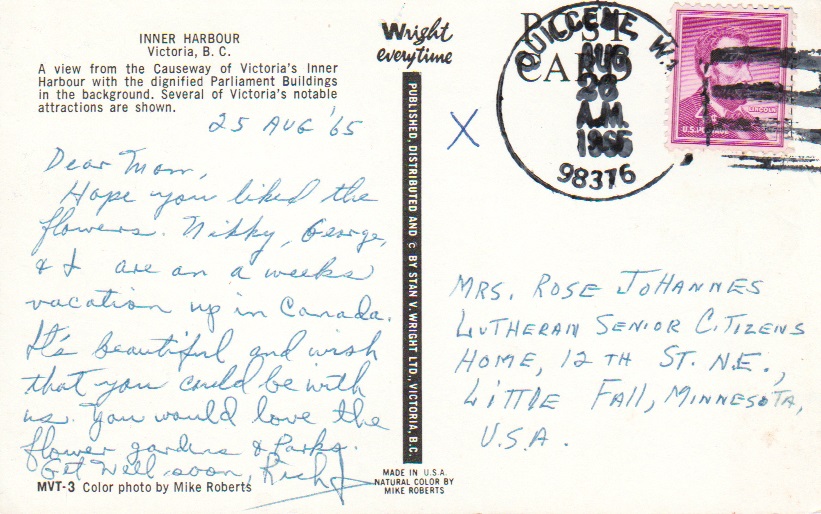 INNER HARBOUR
Victoria, B. C.
A view from the Causeway of Victoria's Inner
Harbour with the dignified Parliament Buildings
in the background. Several of Victoria's notable
attractions are shown.
25 AUG '65
Dear Mom,
Hope you liked the
flowers. Nikky, George,
& I are on a weeks
vacation up in Canada.
It's beautiful and wish
that you could be with
us. You would love the
flower gardens & Parks.
Get Well soon, Rich
MVT-3 Color photo by Mike Roberts
Wright
everytime
PUBLISHED, DISTRIBUTED AND © BY STAN V. WRIGHT LTD., VICTORIA, B.C.
MADE IN U.S.A.
NATURAL COLOR BY
MIKE ROBERTS
X
POST
CARD
QUILCENE, W
AUG
26
A.M.
1965
98376
LINCOLN
4¢
U.S. POSTAGE
MRS. ROSE JOHANNES
LUTHERAN SENIOR CITIZENS
HOME, 12 TH ST. N.E.,
LITTLE FALL, MINNESOTA,
U.S.A.